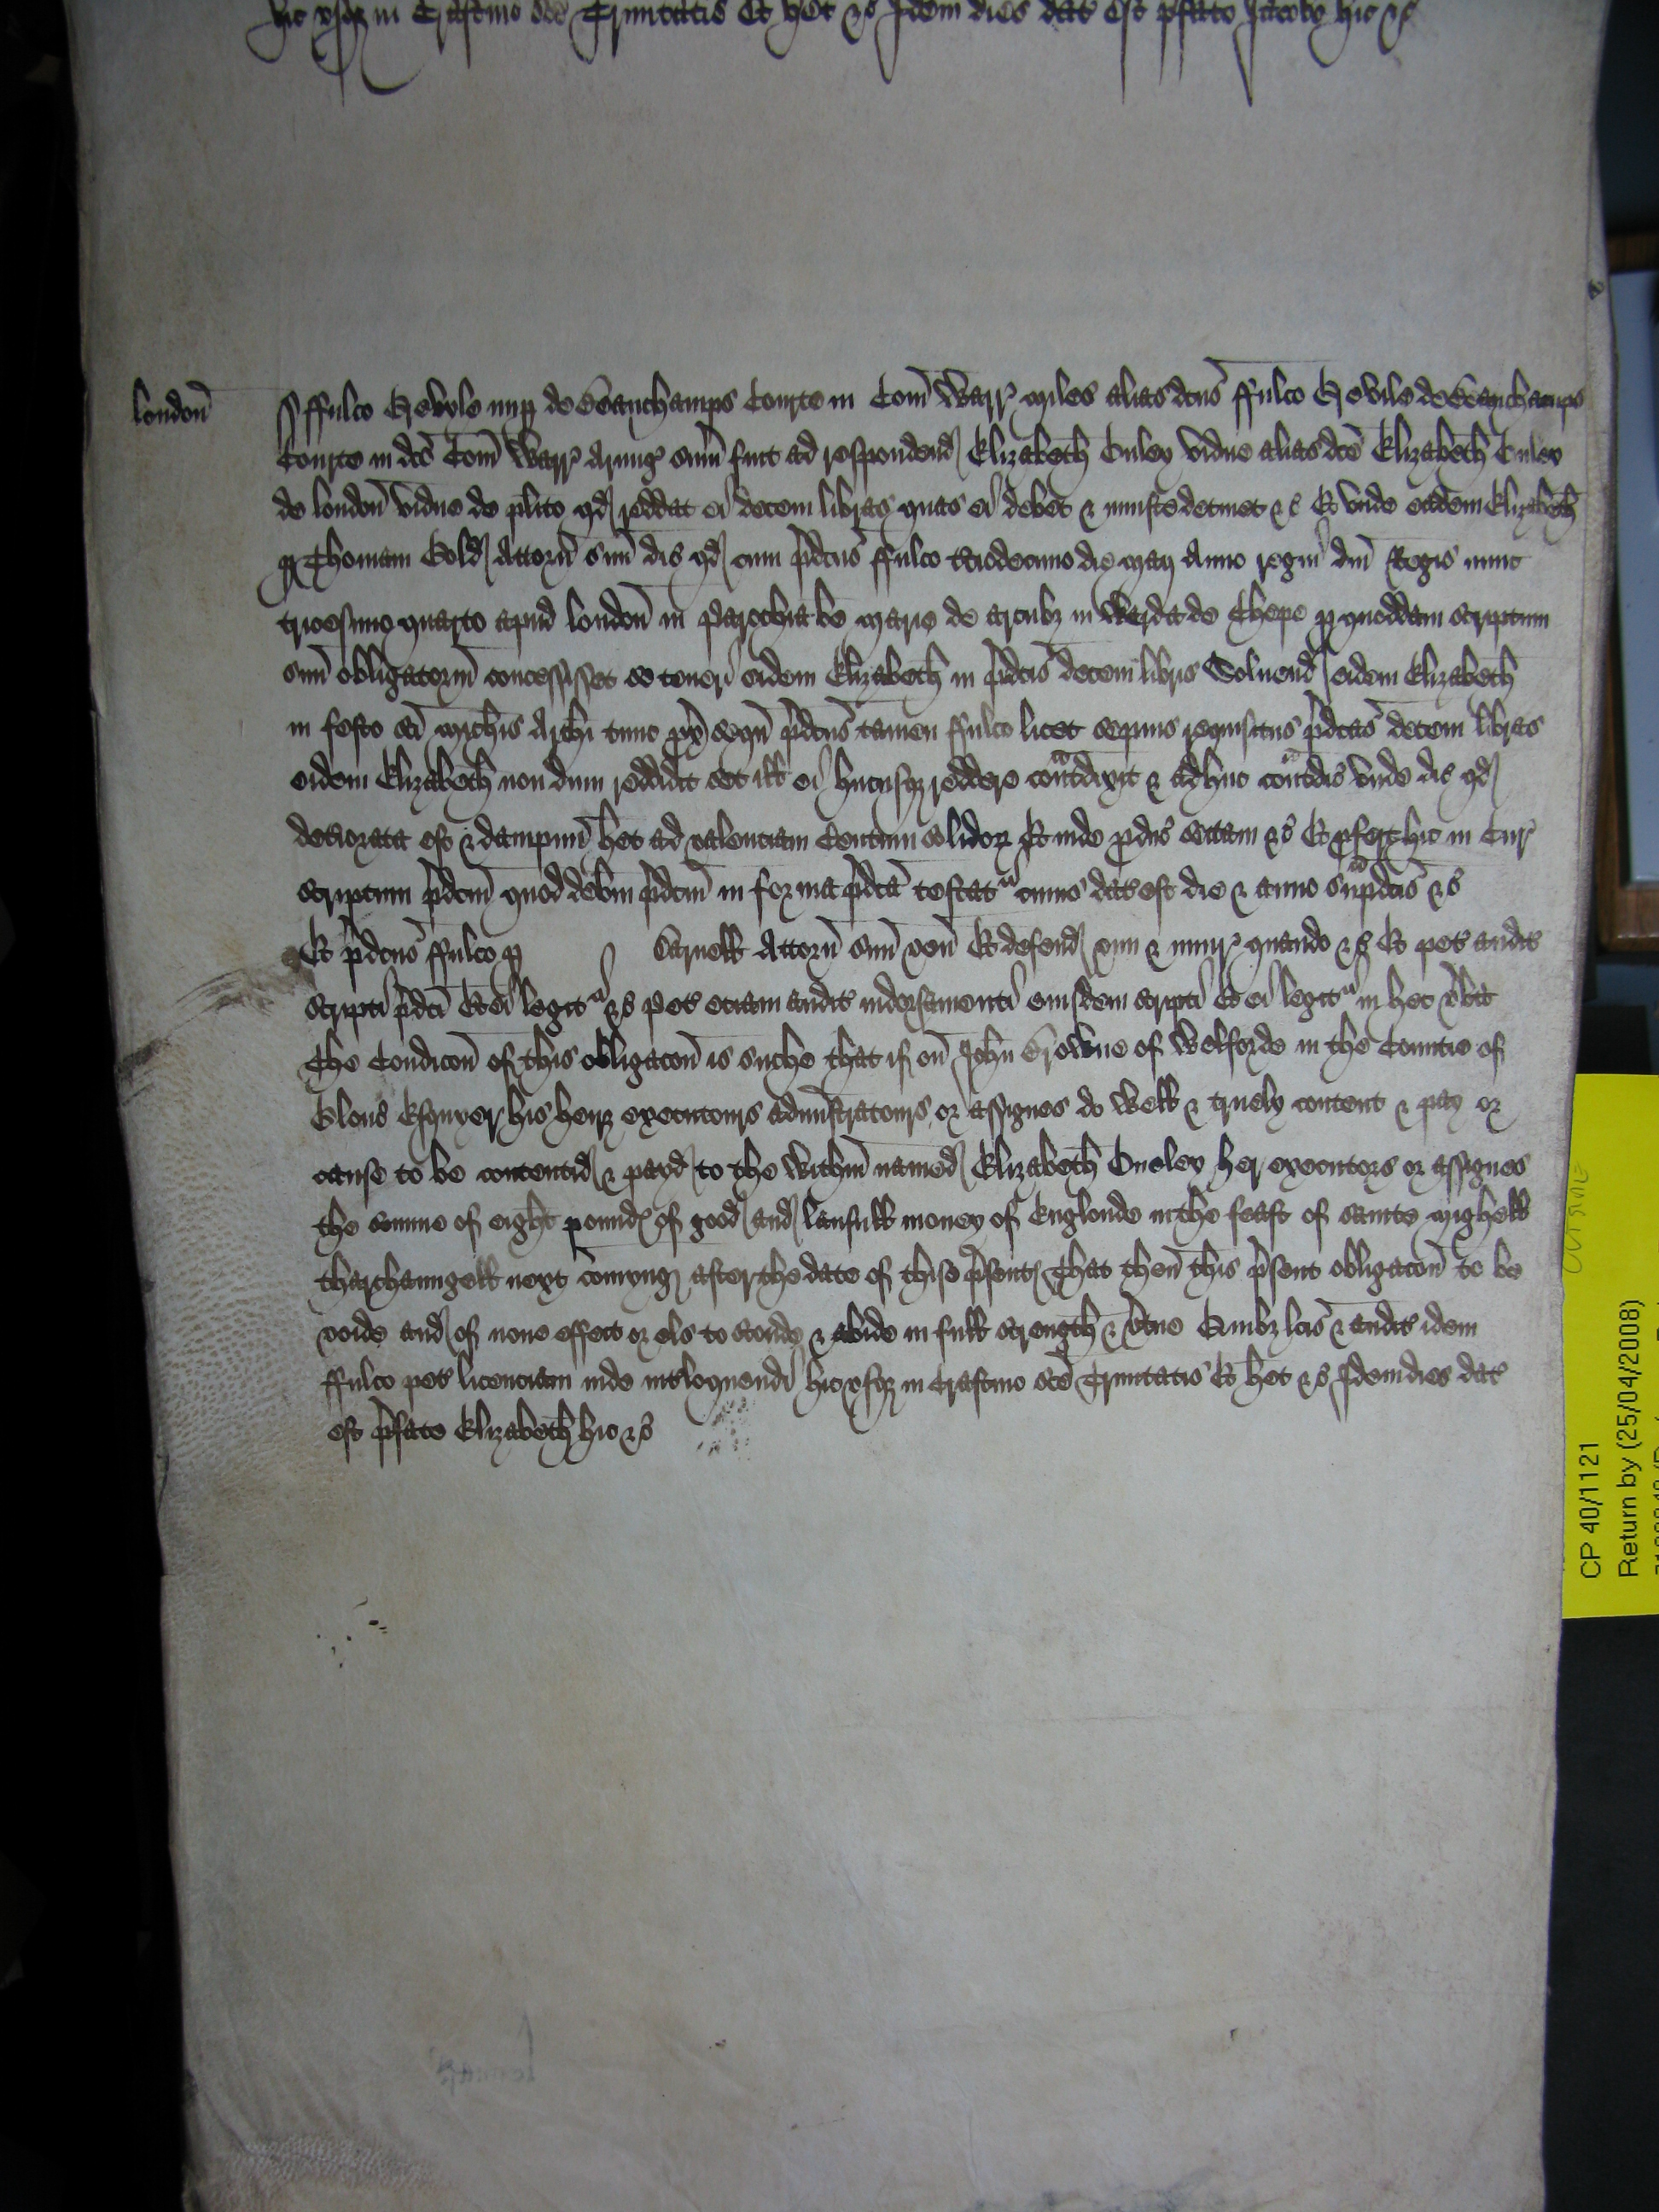 hic vsq3 in Crastino sce Trinitatis Et het &c Idem dies dat est pfato Jacobo hic &c
london
ffulco Grevyle nup de Beauchamps Courte in Com Warr Miles alias dcus ffulco Grevile de Beauchamps
Courte in dco Com Warr Armig sum fuit ad respondend Elizabeth Onley vidue alias dce Elizabeth Onley
de london vidue de plito qd reddat ei decem libras quas ei debet & iniuste detinet &c Et vnde eadem Elizabeth
p Thomam Bold Attorn suu dic qd cum pdcus ffulco die Maij Anno regni dni Regis nunc
tricesimo quarto apud london in parochia be Marie de arcub3 in Warda de Chepe p quoddam scriptum
suu obligatoriu concessisset se teneri eidem Elizabeth in pdcis decem libris Soluend eidem Elizabeth
in festo sci Michis Archi tunc px sequ pdcus tamen ffulco licet sepius requisitus pdcas decem libras
eidem Elizabeth non dum reddidit set ill ei hucusq3 reddere contdixit & adhuc contdic vnde dic qd
detiorata est & dampnu het ad valenciam Centum solidor Et inde pduc sectam &c Et pfert hic in Cur
scriptum pdcm quod debm pdcm in forma pdca testatr cuius dat est die & anno supdcis &c
Et pdcus ffulco p Attorn suu ven Et defend vim & iniur quando &c Et pet audit
scripti pdci Et ei legitr &c pet eciam audit indorsamenti eiusdem scripti Et ei legitr in hec vba
The Condicon of this obligacon is suche that if on John Browne of Welforde in the Countie of
Glouc Esquyer his heirs executours administratours or assignes do well & truely content & pay or
cause to be contentid & payd to the within named Elizabeth Onley her executors or assignes
the summe of eight pounds of good and laufull money of Englonde in the feast of sainte Mighell
tharchaungell next comyng after the date of thise psents That then this psent obligacon to be
voide and of none effect or els to stonde & abide in full strength & vtue Quib3 lcis & audit idem
ffulco pet licenciam inde intloquendi hic vsq3 in Crastino sce Trinitatis Et het &c Idem dies dat
est pfate Elizabeth hic &c
CP 40/1121
Return by (25/04/2008)